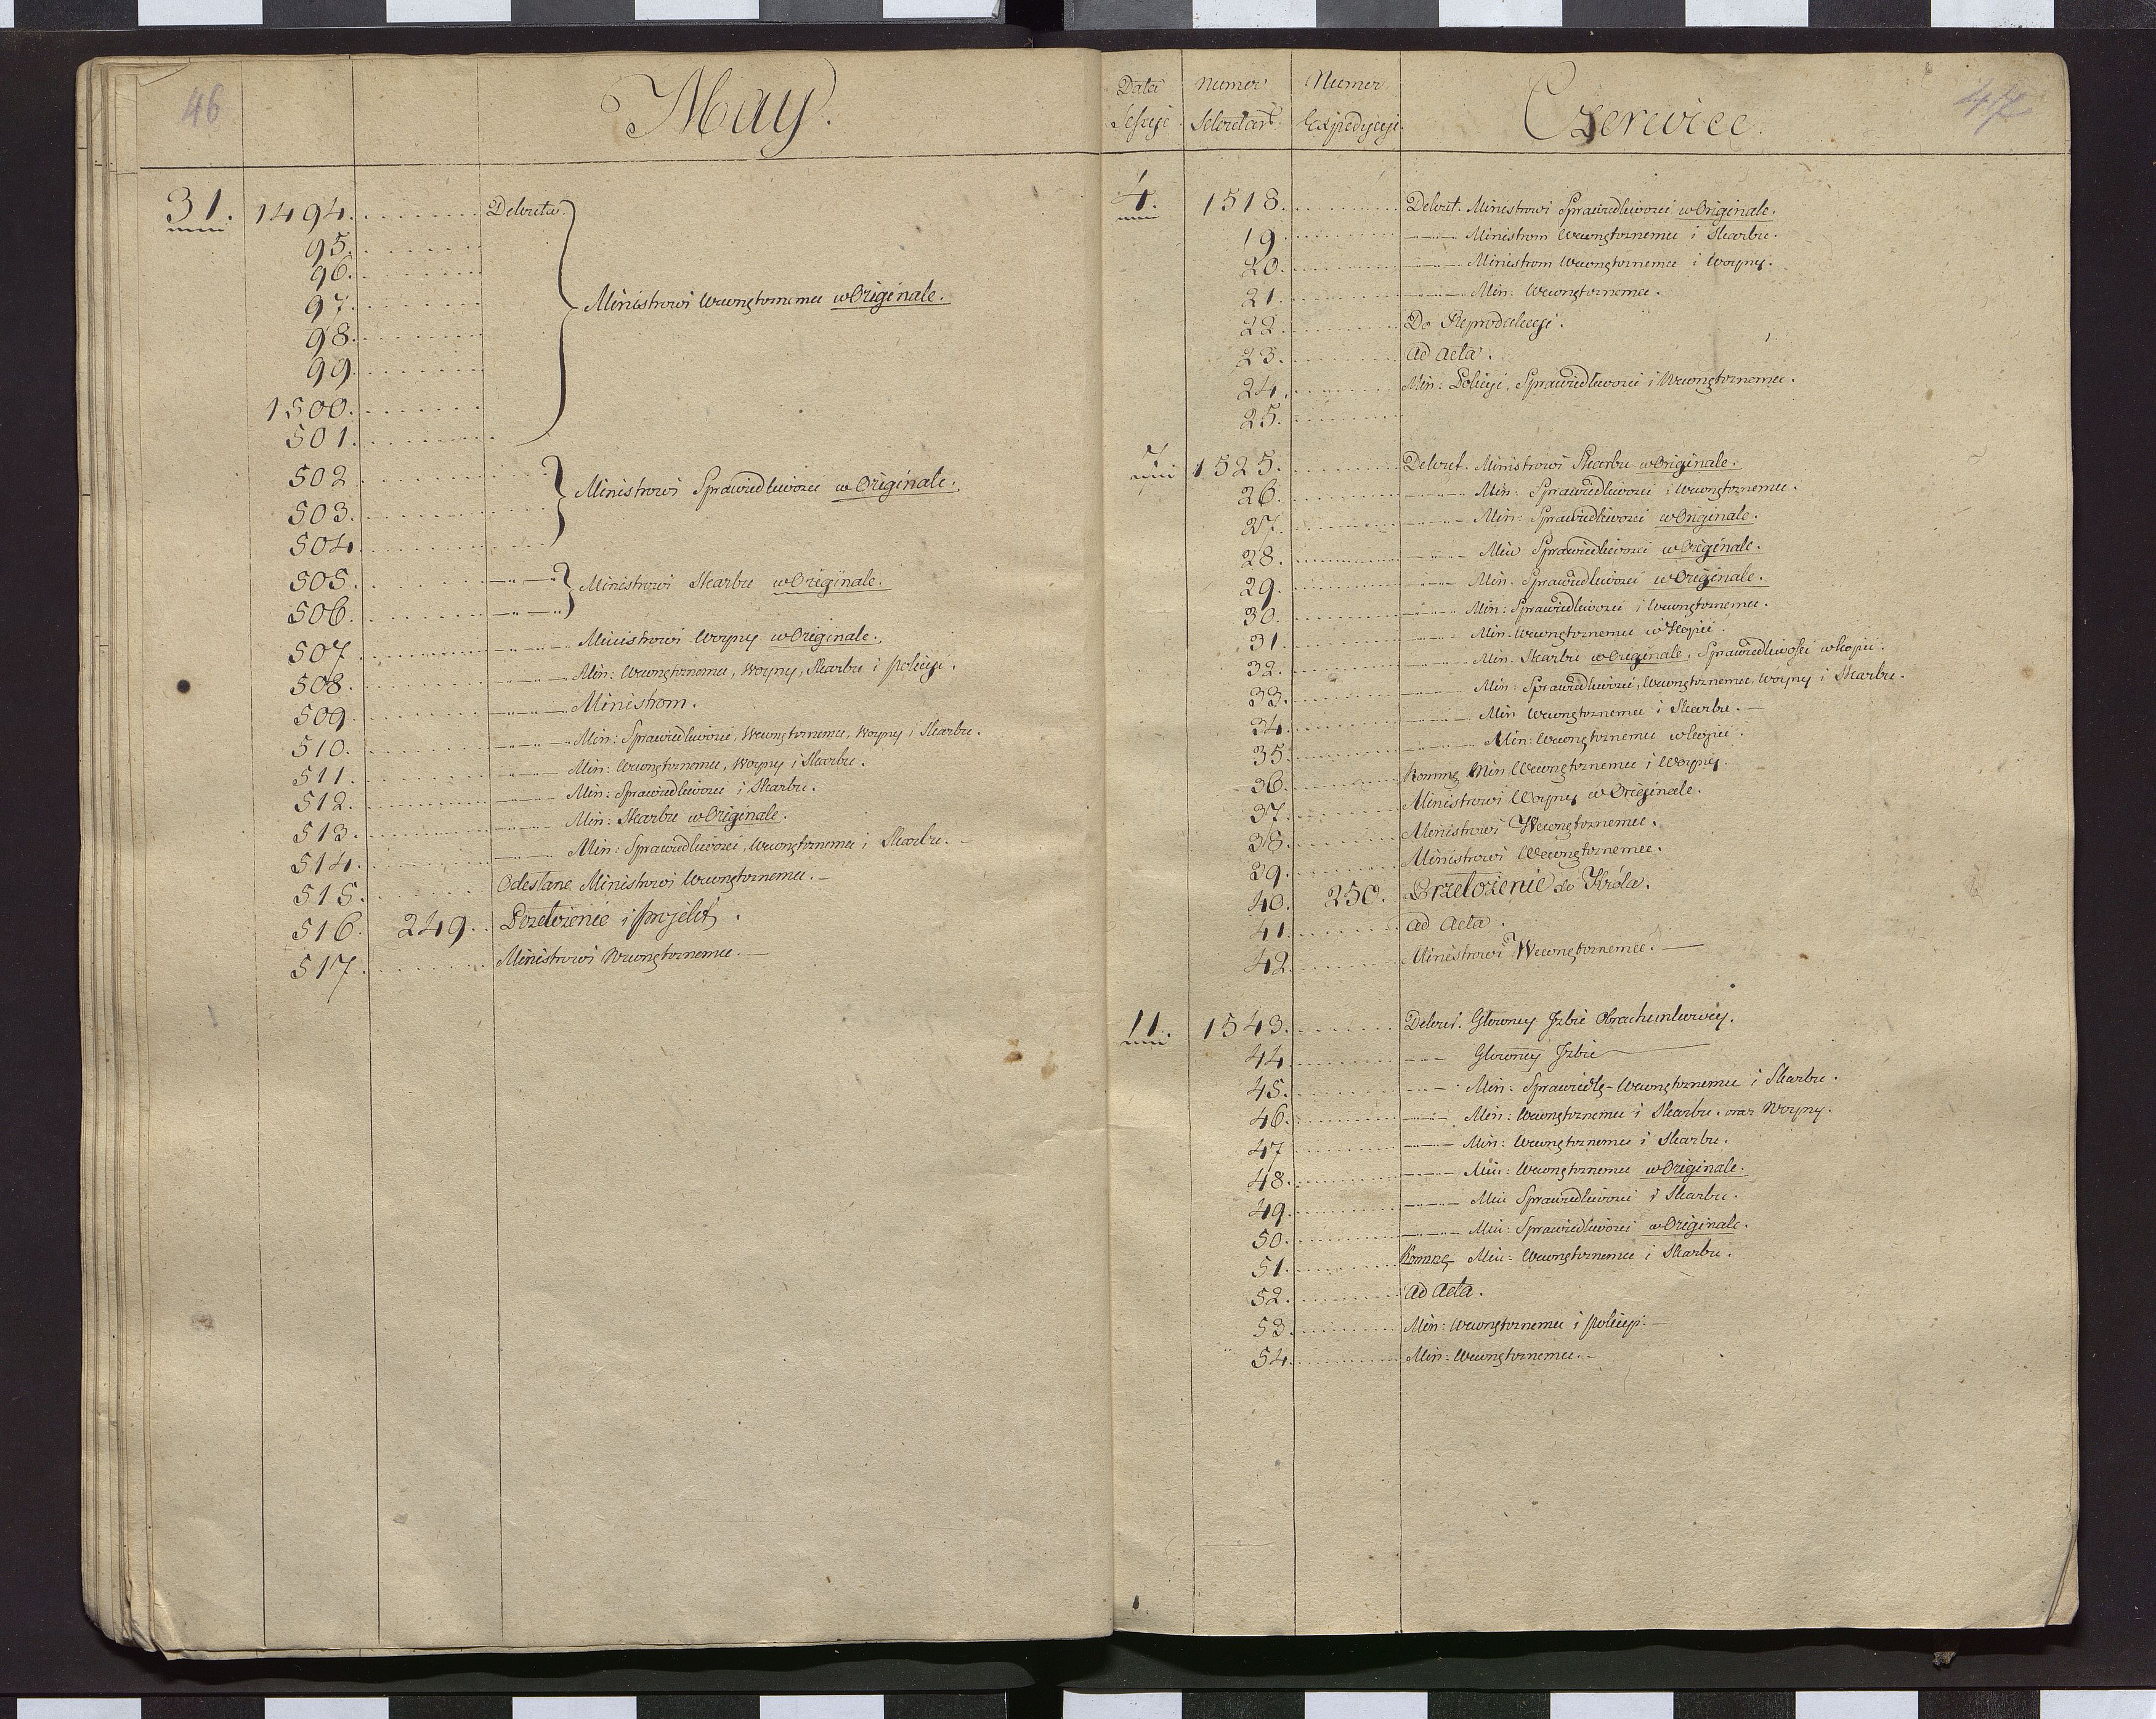 46
May.
31. 1494. Dekreta.
95.
96.
97. Ministrowi Wewnętrznemu w Originale.
98.
99.
1500.
501.
502
503. Ministrowi Sprawiedliwości w Originale.
504
505. Ministrowi Skarbu w Originale.
506.
507 Ministrowi Woyny w Originale.
508. Min: Wewnętrznemu, Woyny, Skarbu i Policyi.
509. Ministrom.
510. Min: Sprawiedliwości, Wewnętrznemu, Woyny i Skarbu.
511. Min: Wewnętrznemu, Woyny i Skarbu.
512. Min: Sprawiedliwości i Skarbu.
513. Min: Skarbu w Originale.
514. Min: Sprawiedliwości, Wewnętrznemu i Skarbu.
515. Odesłane Ministrowi Wewnętrznemu.
516. 249. Przełożenie i projekt.
517. Ministrowi Wewnętrznemu.
47
Data Sessyi Numer Sekretar: Numer Expedycyi Czerwiec.
4. 1518. Dekret. Ministrowi Sprawiedliwości w Originale.
19. Ministrom Wewnętrznemu i Skarbu.
20. Ministrom Wewnętrznemu i Woyny.
21. Min: Wewnętrznemu.
22. Do Reprodukcyi.
23. ad acta.
24. Min: Policyi, Sprawiedliwości i Wewnętrznemu.
25.
7. 1525. Dekret. Ministrowi Skarbu w Originale.
26. Min: Sprawiedliwości i Wewnętrznemu.
27. Min: Sprawiedliwości w Originale.
28. Min Sprawiedliwości w Originale.
29. Min: Sprawiedliwości w Originale.
30. Min: Sprawiedliwości i Wewnętrznemu.
31. Min. Wewnętrznemu w Kopii.
32. Min. Skarbu w Originale, Sprawiedliwości w Kopii.
33. Min: Sprawiedliwości, Wewnętrznemu, Woyny i Skarbu.
34. Min Wewnętrznemu i Skarbu.
35. Min: Wewnętrznemu w Kopii.
36. Kommę Min Wewnętrznemu i Woyny.
37. Ministrowi Woyny w Originale.
38. Ministrowi Wewnętrznemu.
39. Ministrowi Wewnętrznemu.
40. 250. Przełożenie do Króla.
41. ad acta.
42. Ministrowi Wewnętrznemu.
11. 1543. Dekret. Głowney Jzbie Obrachunkowey.
44. Głowney Jzbie
45. Min: Sprawiedlę - Wewnętrznemu i Skarbu.
46. Min: Wewnętrznemu i Skarbu. oraz Woyny.
47 Min: Wewnętrznemu i Skarbu.
48. Min: Wewnętrznemu w Originale.
49. Min Sprawiedliwości i Skarbu.
50. Min: Sprawiedliwości w Originale.
51. Kommę Min: Wewnętrznemu i Skarbu.
52. ad acta.
53 Min: Wewnętrznemu i Policyi.
54. Min: Wewnętrznemu.